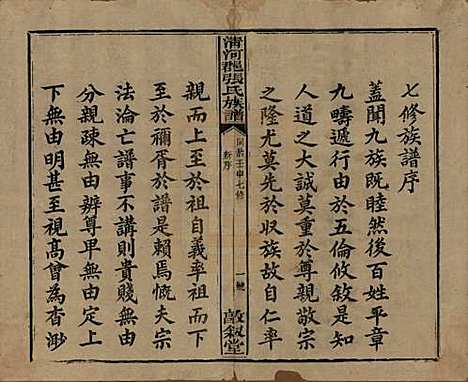 七修族譜序
蓋聞九族既睦然後百姓平章
九疇遞行由於五倫攸敘是知
人道之大誠莫重於尊親敬宗
之隆尤莫先於收族故自仁率
清河郡張氏族譜
同治壬申七修
新序
一號
敦敘堂
親而上至於祖自義率祖而下
至於禰胥於譜是賴焉慨夫宗
法淪亡譜事不講則貴賤無由
分親疎無由辨尊卑無由定上
下無由明甚至視高曾為杳渺